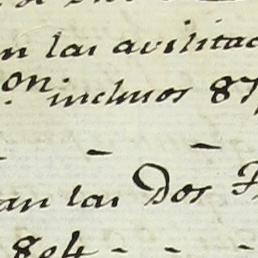 n las avilitac
on inclusos 87
an las Dos F
804